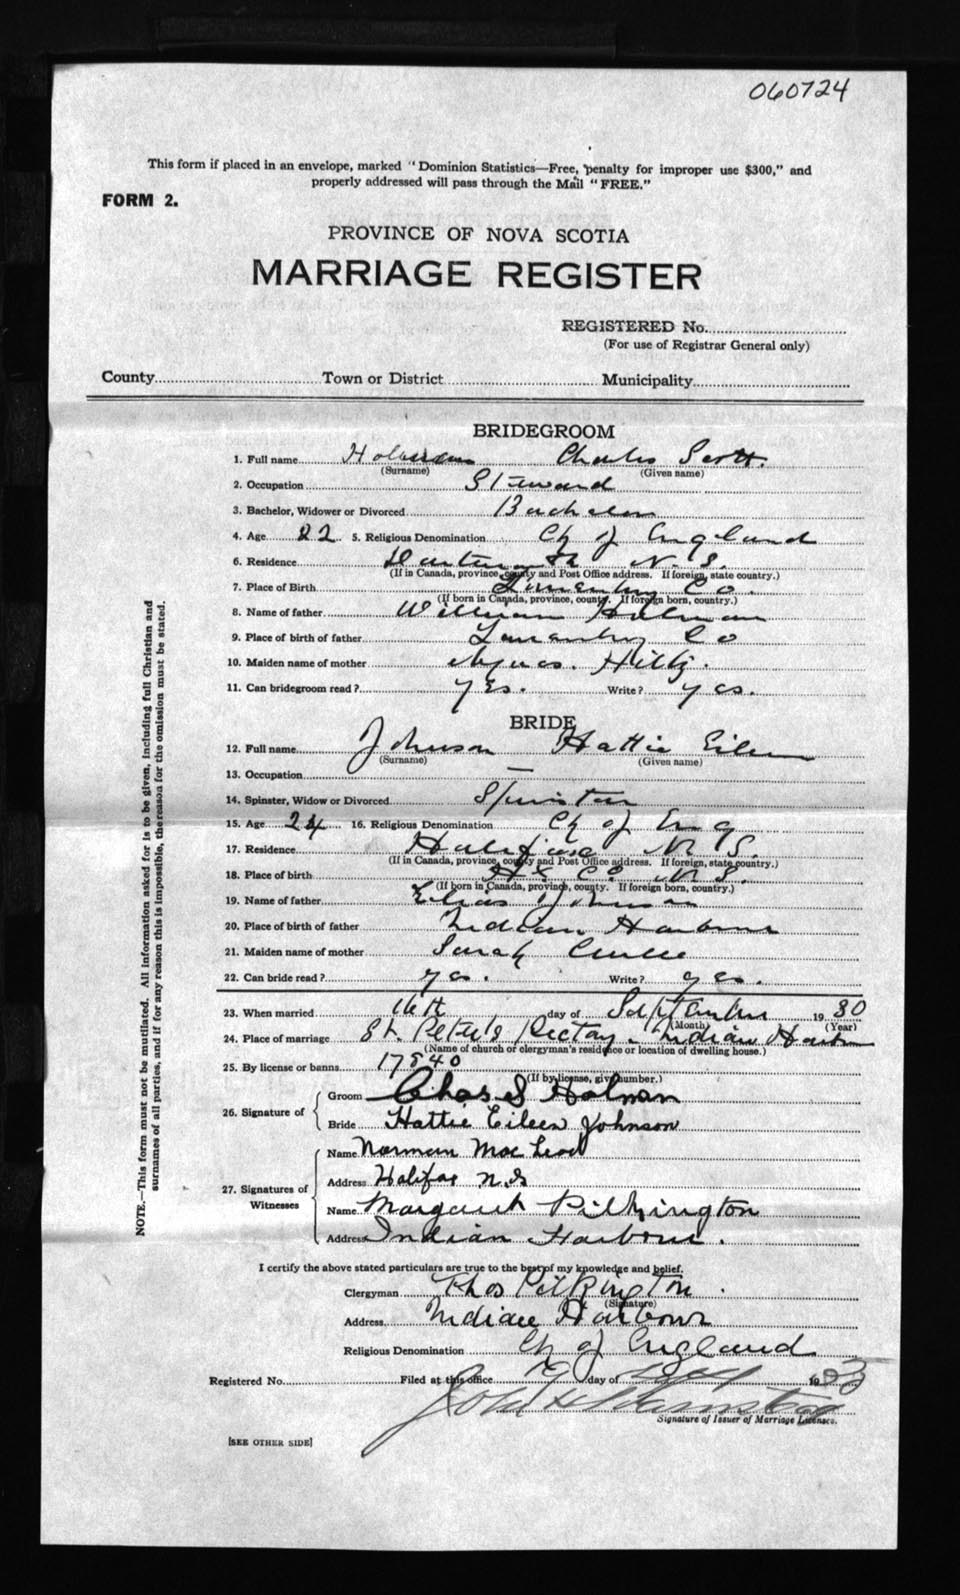 060724
This form if placed in an envelope, marked "Dominion Statistics—Free, penalty for improper use $300," and
properly addressed will pass through the Mail "FREE."
FORM 2.
PROVINCE OF NOVA SCOTIA
MARRIAGE REGISTER
REGISTERED No.
(For use of Registrar General only)
County Town or District Municipality
BRIDEGROOM
1. Full name Holman Charles Scott.
(Surname) (Given name)
2. Occupation Steward
3. Bachelor, Widower or Divorced Bachelor
4. Age 22 5. Religious Denomination Ch of England
6. Residence Dartmouth N.S.
(If in Canada, province, county and Post Office address. If foreign, state country.)
7. Place of Birth Lunenburg Co.
(If born in Canada, province, county. If foreign born, country.)
8. Name of father William Holman
9. Place of birth of father Lunenburg Co
10. Maiden name of mother Agnes. Hiltz.
11. Can bridegroom read? Yes. Write? yes.
BRIDE
12. Full name Johnson Hattie Eileen
(Surname) (Given name)
13. Occupation —
14. Spinster, Widow or Divorced Spinster
15. Age 24 16. Religious Denomination Ch of Eng
17. Residence Halifax N.S.
(If in Canada, province, county and Post Office address. If foreign, state country.)
18. Place of birth Hx Co. N.S.
(If born in Canada, province, county. If foreign born, country.)
19. Name of father Elias Johnson
20. Place of birth of father Indian Harbour
21. Maiden name of mother Sarah
22. Can bride read? yes. Write? yes.
23. When married 16th day of September 1930
(Month) (Year)
24. Place of marriage St. Peter's Rectory, Indian Harbour
(Name of church or clergyman's residence or location of dwelling house.)
25. By license or banns 17940
(If by license, give number.)
26. Signature of
Groom Chas S Holman
Bride Hattie Eileen Johnson
27. Signatures of Witnesses
Name Norman MacLeod
Address Halifax N.S
Name Margaret Pilkington
Address Indian Harbour.
I certify the above stated particulars are true to the best of my knowledge and belief.
Clergyman Thos Pilkington.
(Signature)
Address Indian Harbour
Religious Denomination Ch of England
Registered No. Filed at this office day of Sept 19
Signature of Issuer of Marriage Licenses.
[SEE OTHER SIDE]
NOTE.—This form must not be mutilated. All information asked for is to be given, including full Christian and
surnames of all parties, and if for any reason this is impossible, the reason for the omission must be stated.